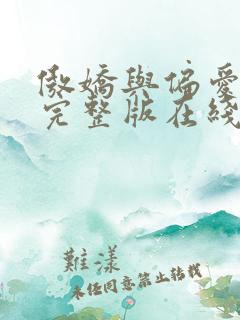 傲嬌與偏愛
完整版在綫
難漾
未任同意禁止轉載